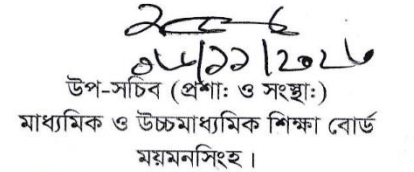 ০৮/১১/২০২৩
উপ-সচিব (প্রশাঃ ও সংস্থাঃ)
মাধ্যমিক ও উচ্চমাধ্যমিক শিক্ষা বোর্ড
ময়মনসিংহ।